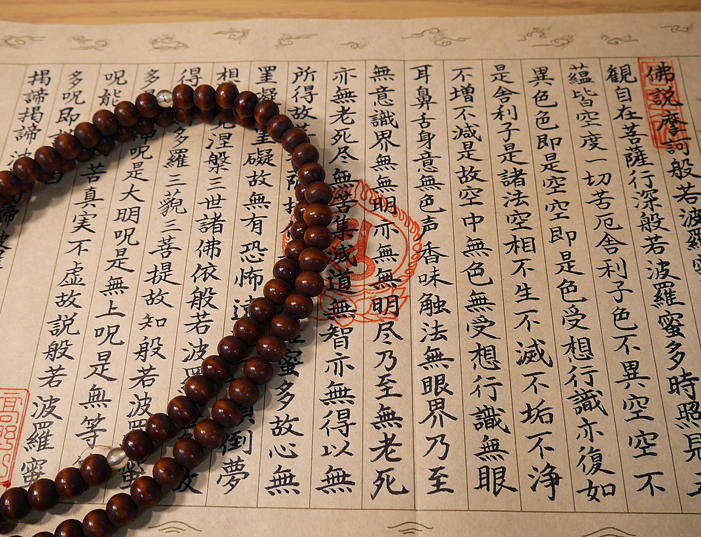 佛説摩訶般若波羅蜜
觀自在菩薩行深般若波羅蜜多時照見五
蘊皆空度一切苦厄舍利子色不異空空不
異色色即是空空即是色受想行識亦復如
是舍利子是諸法空相不生不滅不垢不浄
不増不減是故空中無色無受想行識無眼
耳鼻舌身意無色声香味触法無眼界乃至
無意識界無無明亦無無明尽乃至無老死
亦無老死尽無苦集滅道無智亦無得以無
所得故 蜜多故心無
罣礙 罣礙故無有恐怖遠 倒夢
想 涅槃三世諸佛依般若波
得 多羅三藐三菩提故知般若波羅
多 呪是大明呪是無上呪是無等
呪能 苦真実不虚故説般若波羅蜜
多呪即
揭諦揭諦